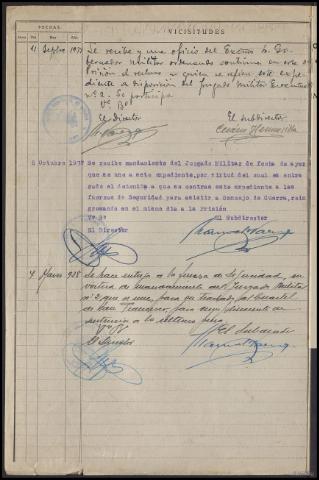 FECHAS
VICISITUDES
Día Mes Año
11 Septbre 1937 Se recibe y une oficio del Excmo Sr. Go-
bernador Militar ordenando continúe en esta
Prisión el recluso a quien se refiere este expe-
diente a disposición del Juzgado Militar Ejecutivo
nº 2. Se participa
Vº Bº
El Director El Subdirector
8 Octubre 1937 Se recibe mandamiento del Juzgado Militar de fecha de ayer
que se une a este expediente, por virtud del cual es entre-
gado el detenido a que se contrae este expediente a las
fuerzas de Seguridad para asistir a Consejo de Guerra, rein-
gresando en el mismo día a la Prisión
Vº Bº El Subdirector
El Director
7 Marzo 938 Se hace entrega a la fuerza de Seguridad, en
virtud de mandamiento del Juzgado Militar
nº 2 que se une, para su traslado al Cuartel
de San Francisco, para
sentencia a la última pena
Vº Bº El Subdirector
El Director